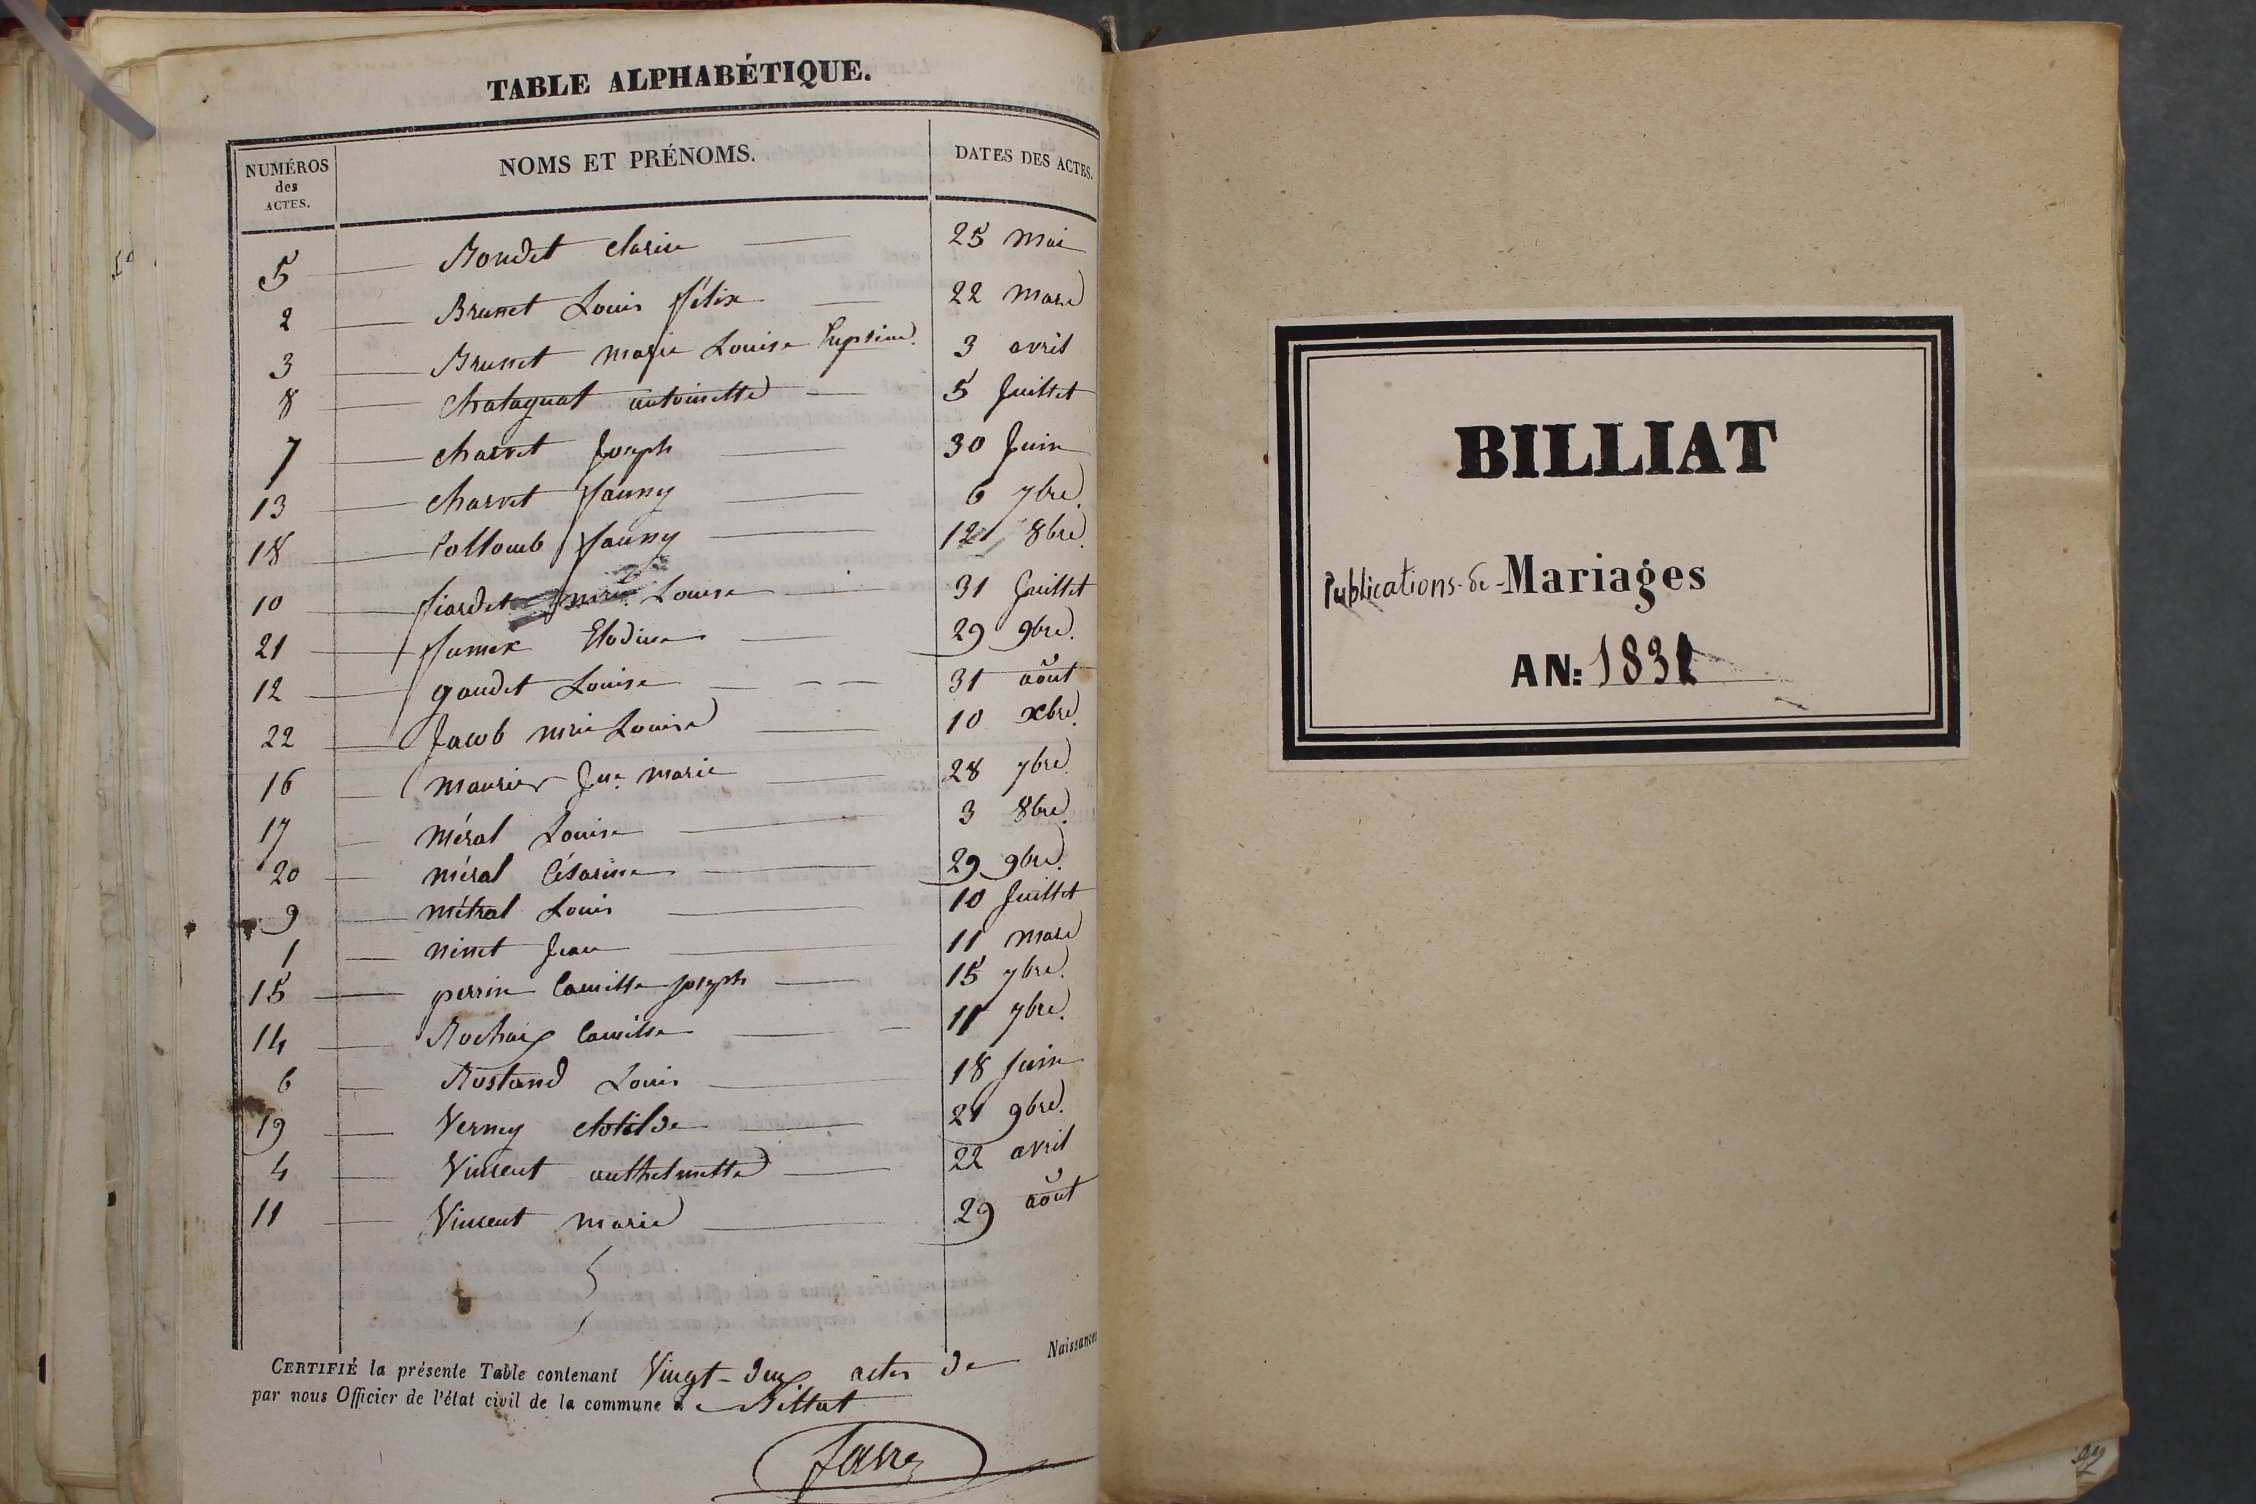 TABLE ALPHABÉTIQUE.
NUMÉROS des ACTES. NOMS ET PRÉNOMS. DATES DES ACTES.
5 Boudet Clarice 25 mai
2 Brunet Louis félix 22 mars
3 Brunet marie Louise 3 avril
8 Chatagnat antoinette 5 Juillet
7 Charvet Joseph 30 Juin
13 Charvet fanny 6 7bre.
18 Collomb fanny 12 8bre.
10 fiardet mrie. Louise 31 Juillet
21 fumex Elodie 29 9bre.
12 gaudet Louise 31 août
22 Jacob mrie Louise 10 xbre.
16 maurier Jne. marie 28 7bre.
17 méral Louise 3 8bre.
20 méral Césarine 29 9bre.
9 métral Louis 10 Juillet
1 ninet Jean 11 mars
15 perrin Camille joseph 15 7bre.
14 Rochaix Camille 11 7bre.
6 Rostand Louis 18 Juin
19 Verney Clotilde 21 9bre.
4 Vincent anthelmette 22 avril
11 Vincent marie 29 août
CERTIFIÉ la présente Table contenant Vingt-deux actes de Naissances
par nous Officier de l'état civil de la commune de Billiat
favre
BILLIAT
Publications-de-Mariages
AN: 1832